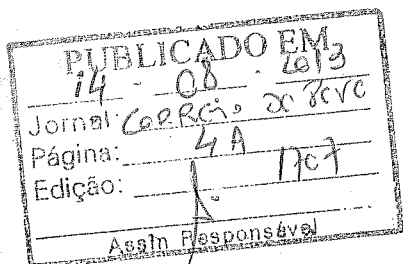 PUBLICADO EM
14 - 08 - 2013
Jornal: CORREIO DO POVO
Página: 4 A
Edição: 1707
Assin Responsável